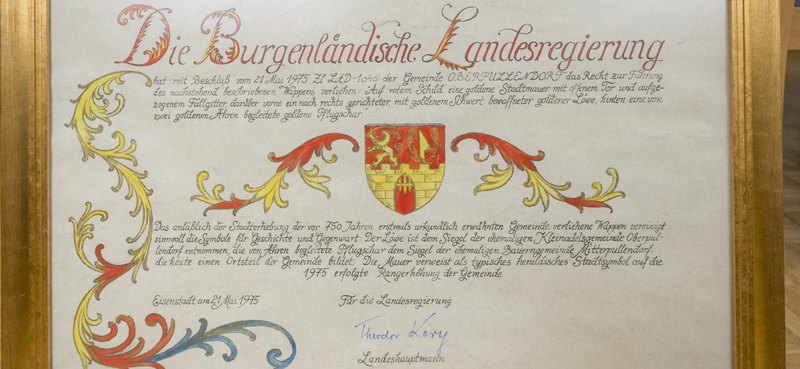 Die Burgenländische Landesregierung
hat mit Beschluß vom 21 Mai 1975 Zl LAD-1040 der Gemeinde OBERPULLENDORF das Recht zur Führung
des nachstehend beschriebenen Wappens verliehen: Auf rotem Schild eine goldene Stadtmauer mit offenem Tor und aufge-
zogenem Fallgitter, darüber vorne ein nach rechts gerichteter, mit goldenem Schwert bewaffneter goldener Löwe, hinten eine von
zwei goldenen Ähren begleitete goldene Pflugschar.
Das anläßlich der Stadterhebung der vor 750 Jahren erstmals urkundlich erwähnten Gemeinde verliehene Wappen vereinigt
sinnvoll die Symbole für Geschichte und Gegenwart: Der Löwe ist dem Siegel der ehemaligen Kleinadelsgemeinde Oberpul-
lendorf entnommen, die von Ähren begleitete Pflugschar dem Siegel der ehemaligen Bauerngemeinde Mitterpullendorf,
die heute einen Ortsteil der Gemeinde bildet. Die Mauer verweist als typisches heraldisches Stadtsymbol auf die
1975 erfolgte Rangerhöhung der Gemeinde.
Eisenstadt am 21 Mai 1975 Für die Landesregierung
Theodor Kery
Landeshauptmann